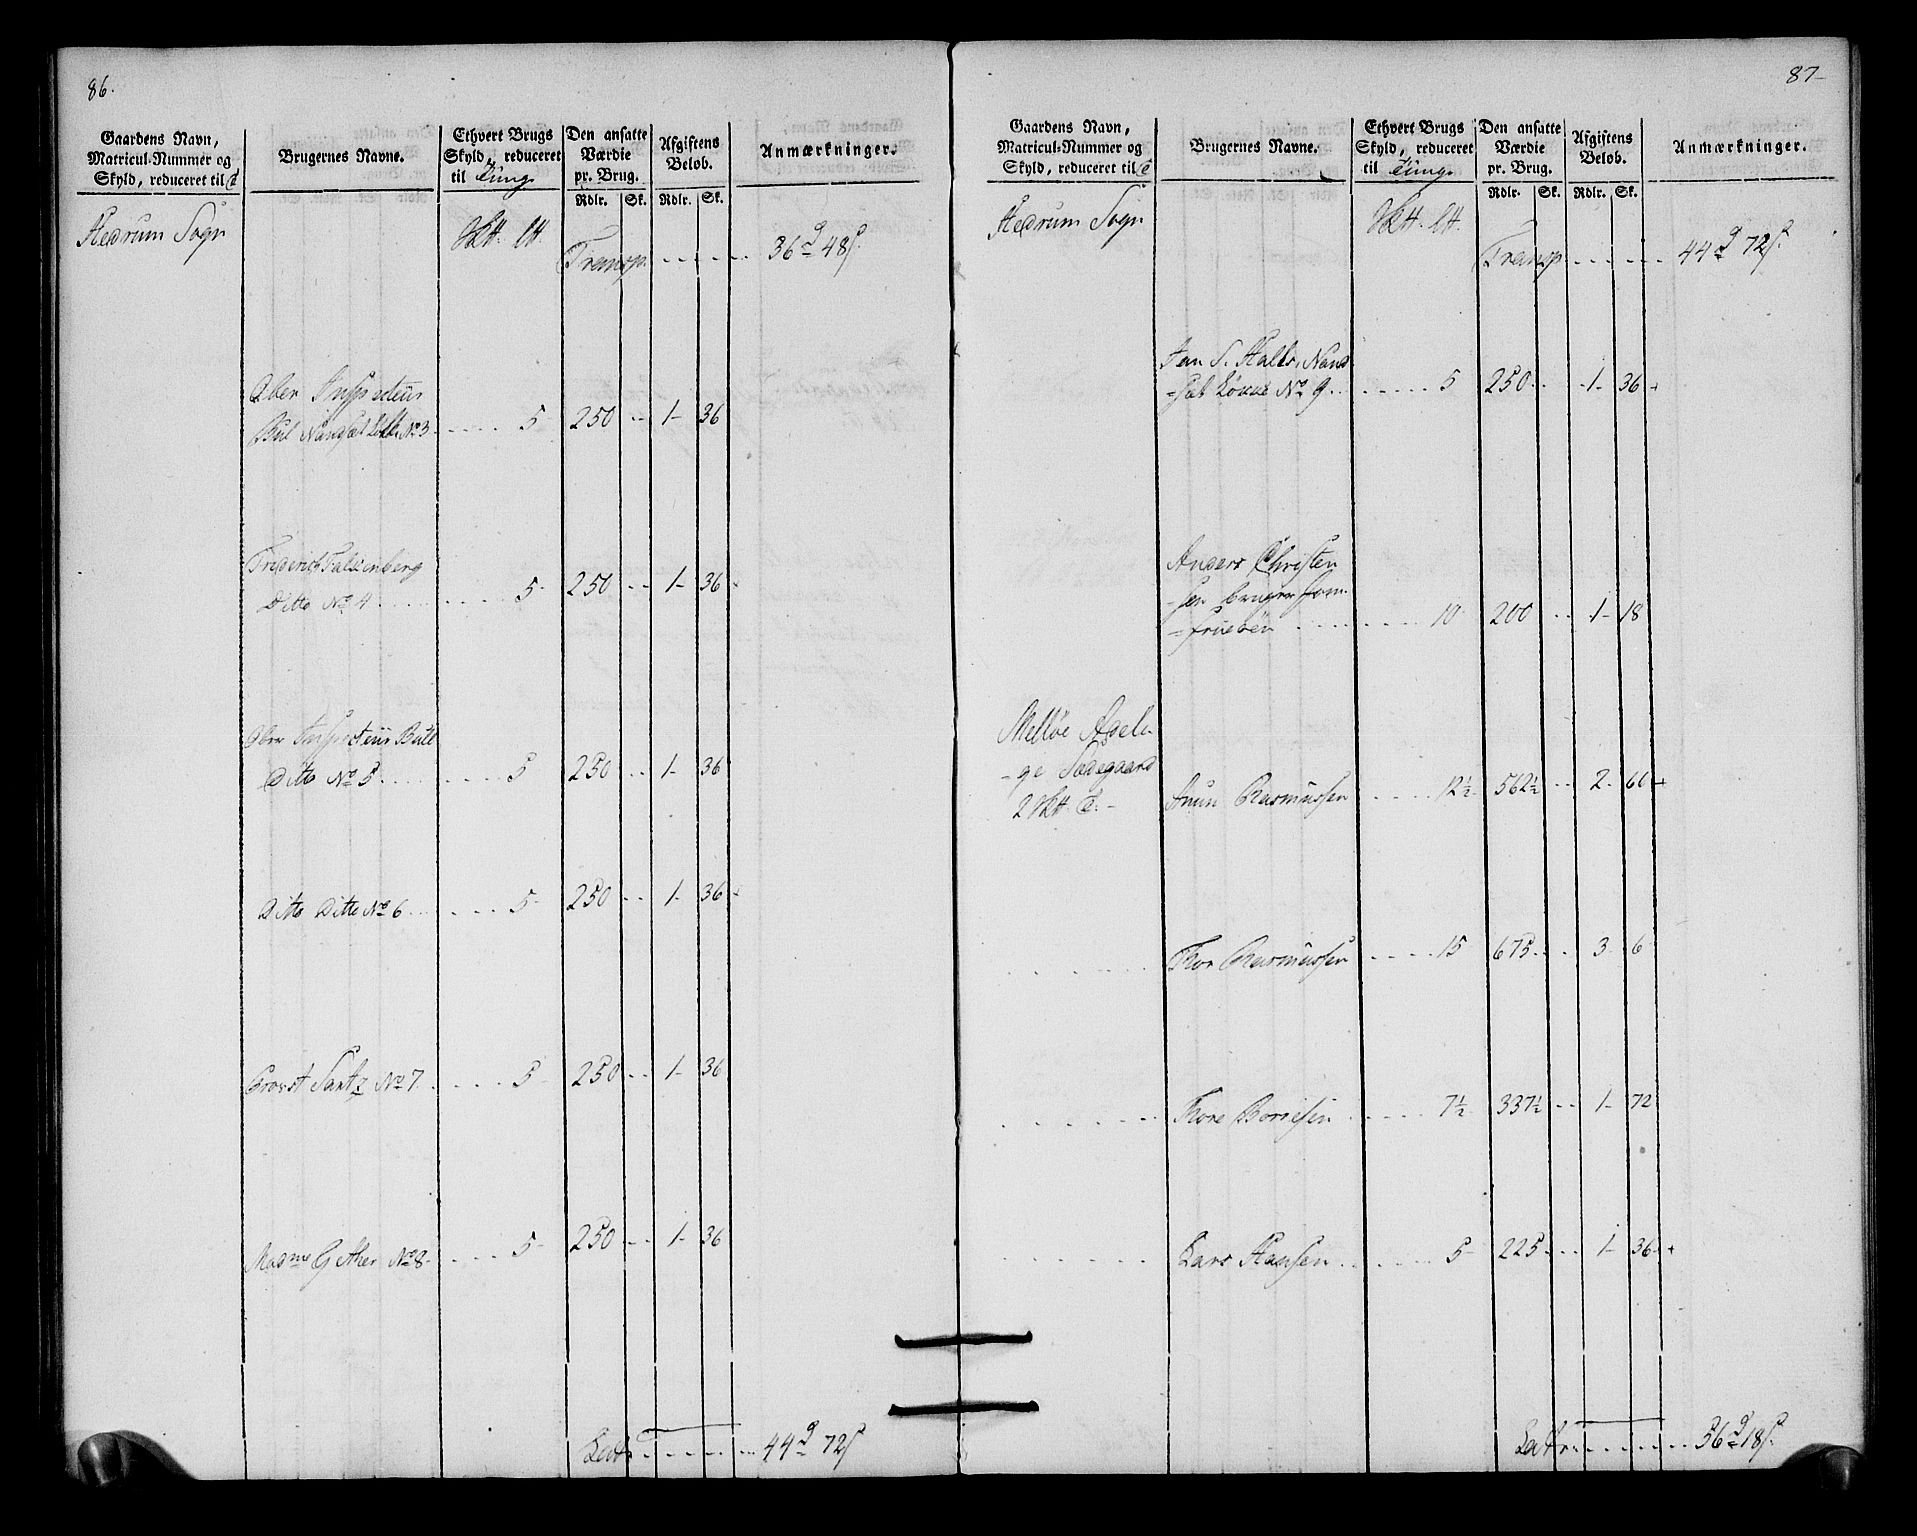 86.
Gaardens Navn,
Matricul-Nummer og
Skyld, reduceret til
Brugernes Navne.
Ethvert Brugs
Skyld, reduceret
til Tunge
Den ansatte
Værdie
pr. Brug.
Rdlr. Sk.
Afgiftens
Beløb.
Rdlr. Sk.
Anmærkninger.
Hedrum Sogn
Transp. 36 48
Ober Inspecteur
No 3 5 250 1 36
Friderich Falkenberg
Ditto No 4 5 250 1 36
Ober Inspecteur Bull
Ditto No 5 5 250 1 36
Ditto Ditto No 6 5 250 1 36
Provst No 7 5 250 1 36
Mad.me No 8 5 250 1 36
Lat. 44 72
87
Gaardens Navn,
Matricul-Nummer og
Skyld, reduceret til
Brugernes Navne.
Ethvert Brugs
Skyld, reduceret
til Tunge
Den ansatte
Værdie
pr. Brug.
Rdlr. Sk.
Afgiftens
Beløb.
Rdlr. Sk.
Anmærkninger.
Hedrum Sogn
Transp. 44 72
No 9 5 250 1 36
Anders Christen
=sen bruger Jom
=fruebøn 10 200 1 18
Melløe Adeli-
=ge Sædegaard
2 Rasmussen 12½ 562½ 2 60
Thor Rasmussen 15 675 3 6
Thore 7½ 337½ 1 72
Lars Hansen 5 225 1 36
Lat. 56 18